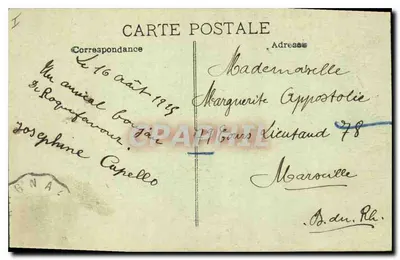 I
CARTE POSTALE
Correspondance
Adresse
Le 16 août 1925
Un amical bonjour
de Roquefavour !
Joséphine Capello
Mademoiselle
Marguerite Appostolie
Cours Lieutaud 78
Marseille
B. du Rh.
GNA
CPARAMA